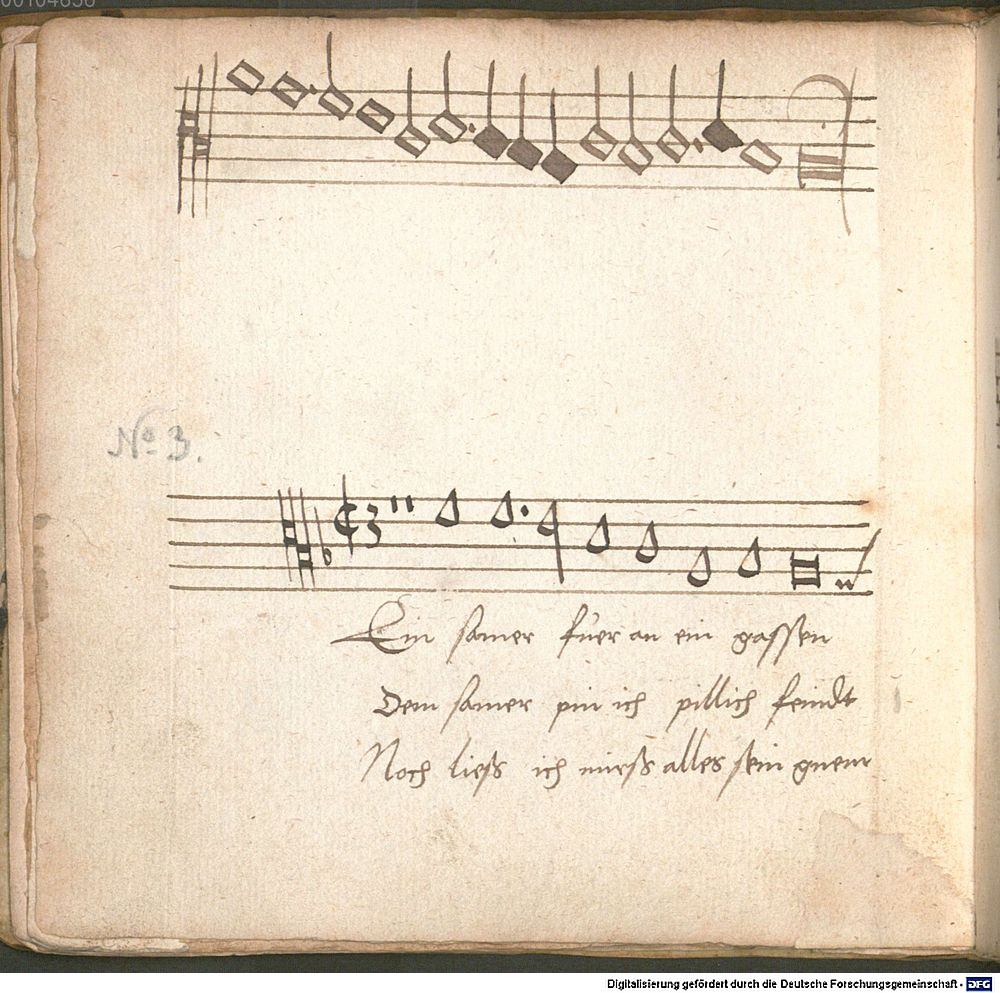 00104836
No 3.
Ein samer fuer an ein gassen
Dem samer pin ich pillich feindt
Noch liess ich mirss alles sein
Digitalisierung gefördert durch die Deutsche Forschungsgemeinschaft - DFG